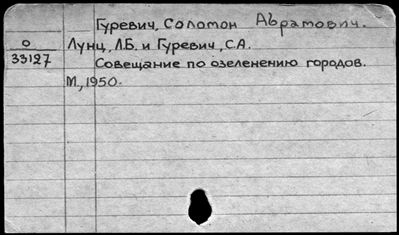 Гуревич, Соломон Абрамович.
О
33127
Лунц, Л.Б. и Гуревич, С.А.
Совещание по озеленению городов.
М., 1950.